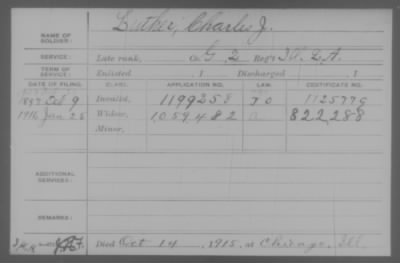 NAME OF SOLDIER: Luther, Charles J.
SERVICE: Late rank, Co. G 2 Reg't Ill. L.A.
TERM OF SERVICE: Enlisted , 1 Discharged , 1
DATE OF FILING. CLASS. APPLICATION NO. LAW. CERTIFICATE NO.
1897 Oct 9 Invalid, 1199258 1125779
1916 Jan 25 Widow, 1059482 822,288
Minor,
ADDITIONAL SERVICES:
REMARKS:
Died Oct 14 1915, at Chicago, Ill.